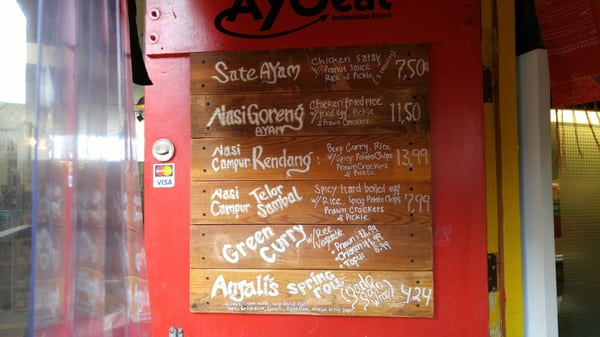 AyOeat
Indonesian Food
Sate Ayam
Chicken satay
w/ Peanut Sauce
Rice & Pickle
7,50
Nasi Goreng
AYAM
Chicken fried rice
w/ fried egg, Pickle
& Prawn Crackers
11,50
Nasi
Campur Rendang :
Beef Curry, Rice
w/ Spicy Potato Chips
Prawn Crackers
& Pickle
13,99
Nasi
Campur
Telor
Sambal
Spicy hard boiled egg
w/ Rice, Spicy Potato Chips
Prawn Crackers
& Pickle
7,99
Green
Curry
w/ Rice
Vegetable
• Prawn 12,99
• Tofu
8,99
Anjali's Spring
roll
4,24
VISA